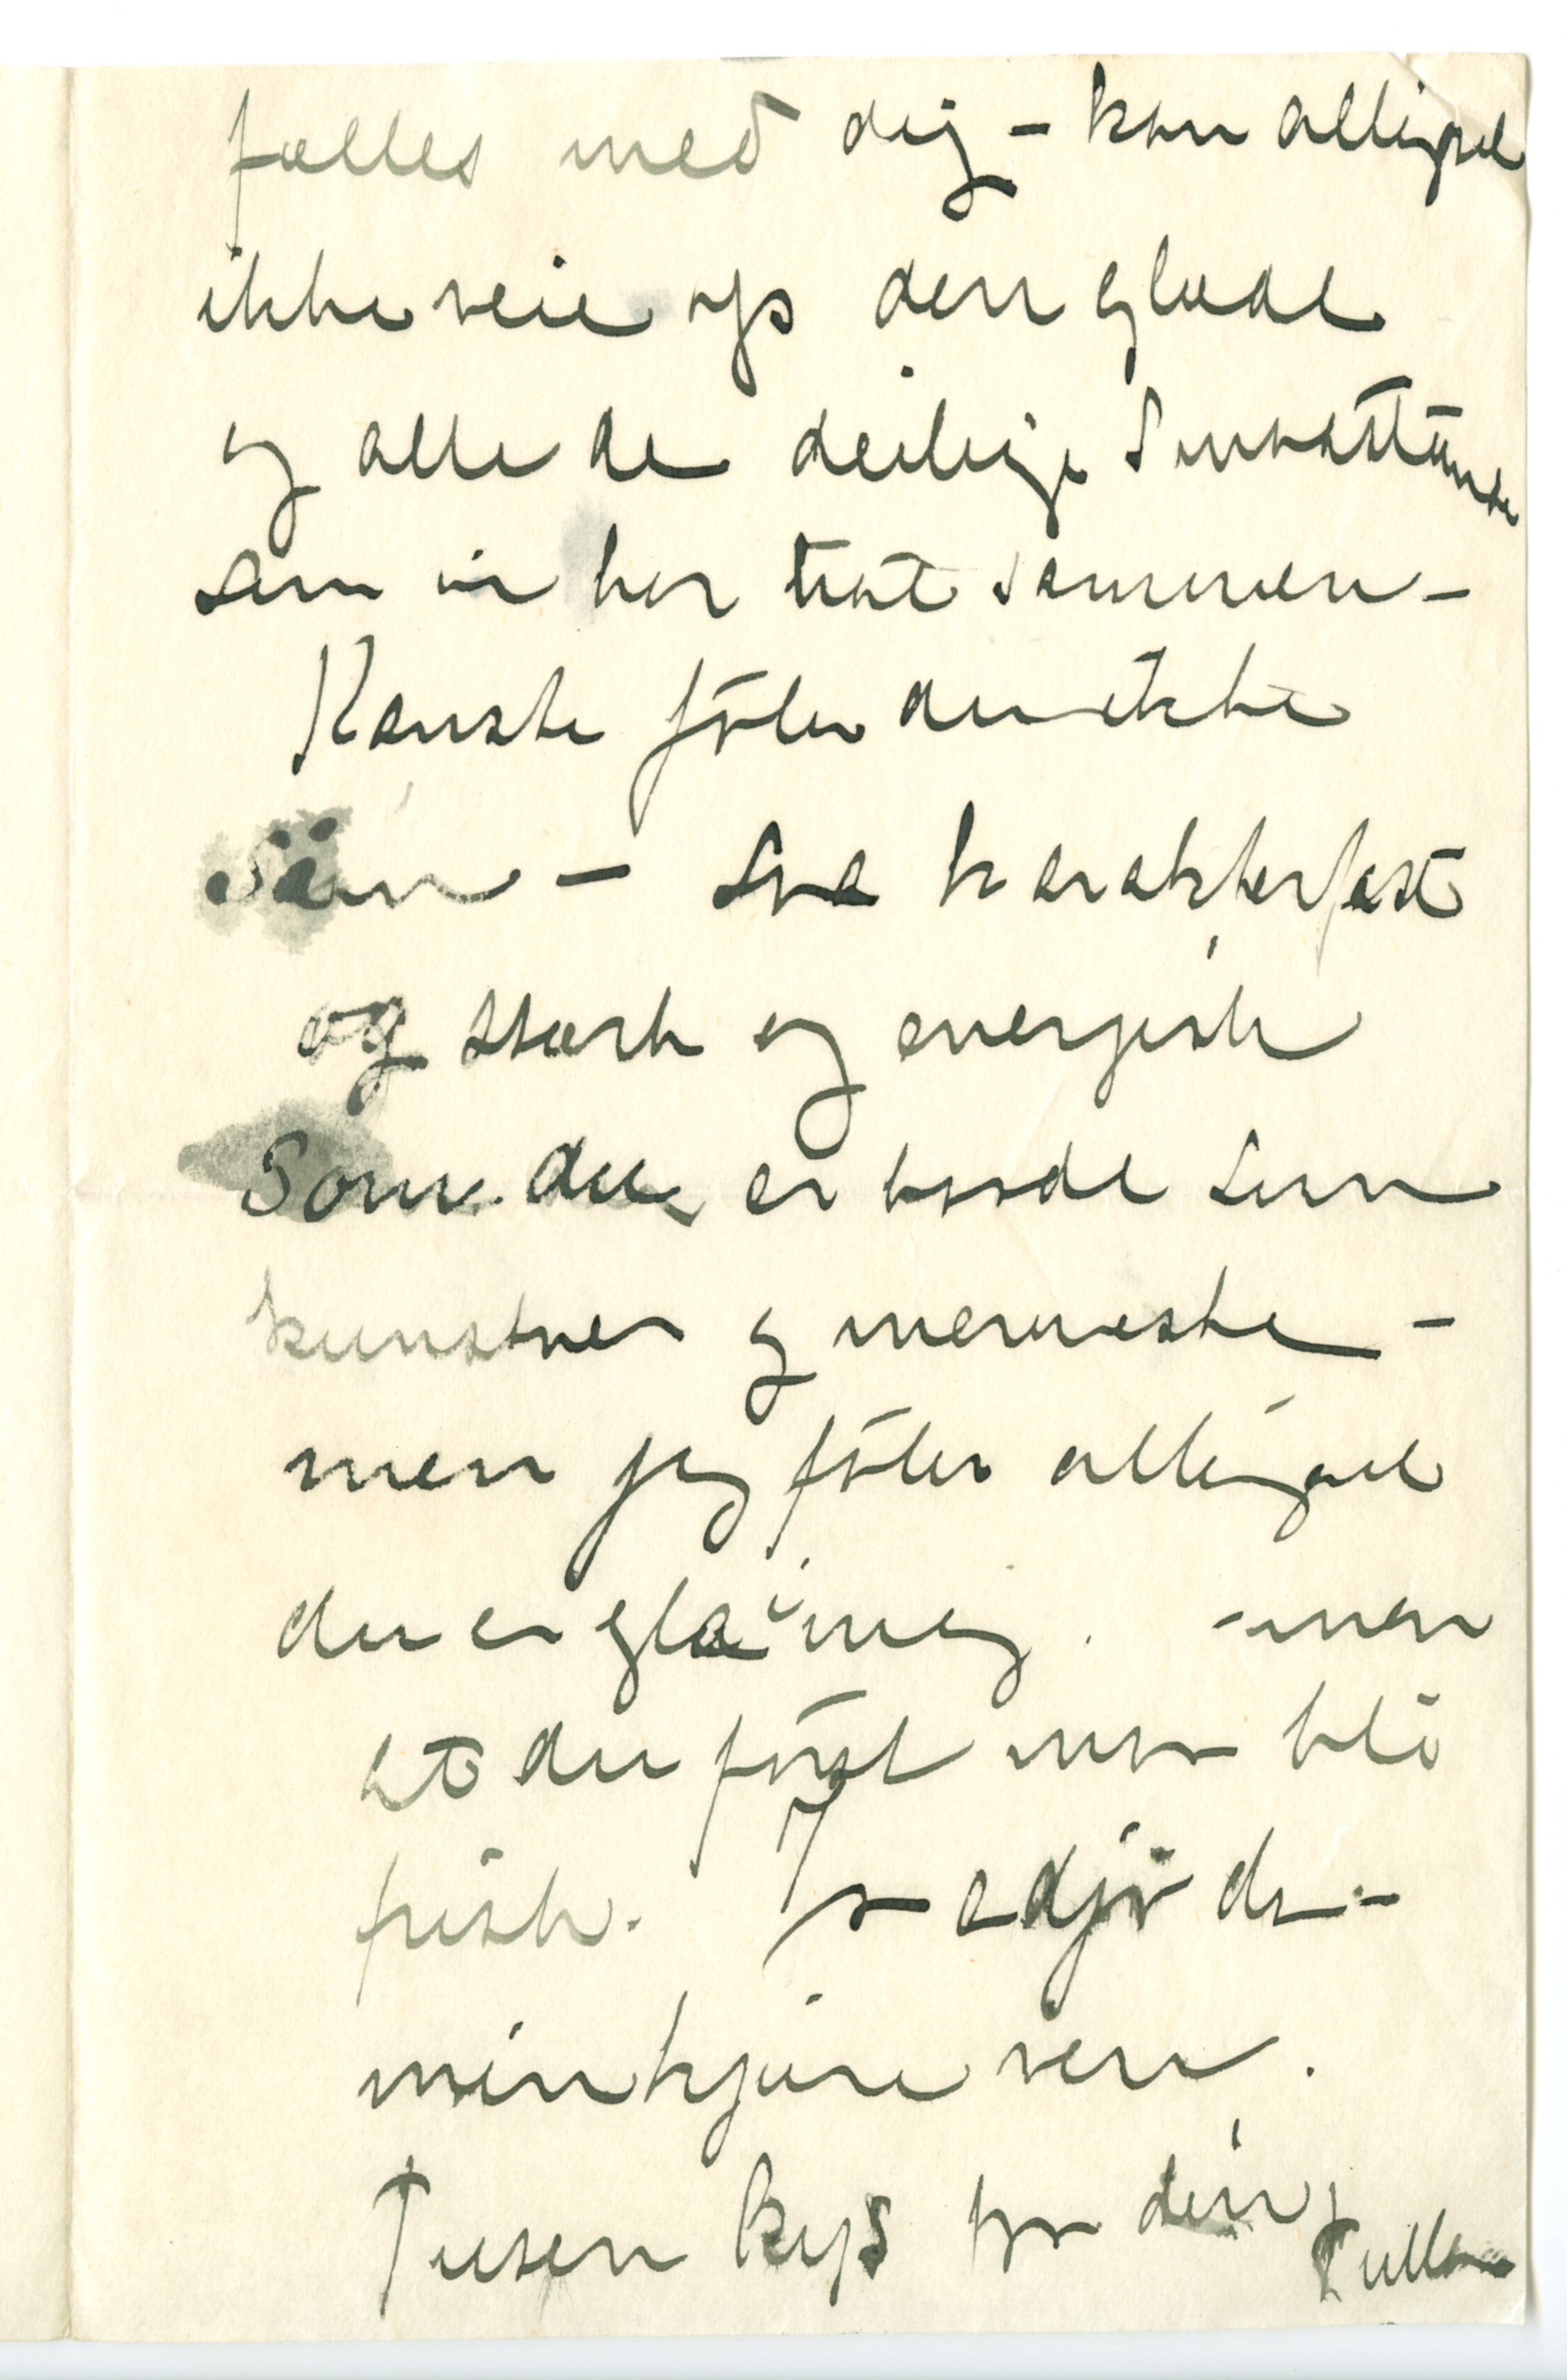 fælles med dig – kan alligevel
ikke veie op den glæde
og alle de deilige
som vi har hat sammen –
Kanske föler du ikke
sån – saa karakterfast
og stærk og energisk
som du er baade som
kunstner og menneske –
men jeg föler alligevel
du er gla i mig. – men
at du först maa bli
frisk. Ja adjö da –
min kjære ven.
Tusen kys fra din
Tulla